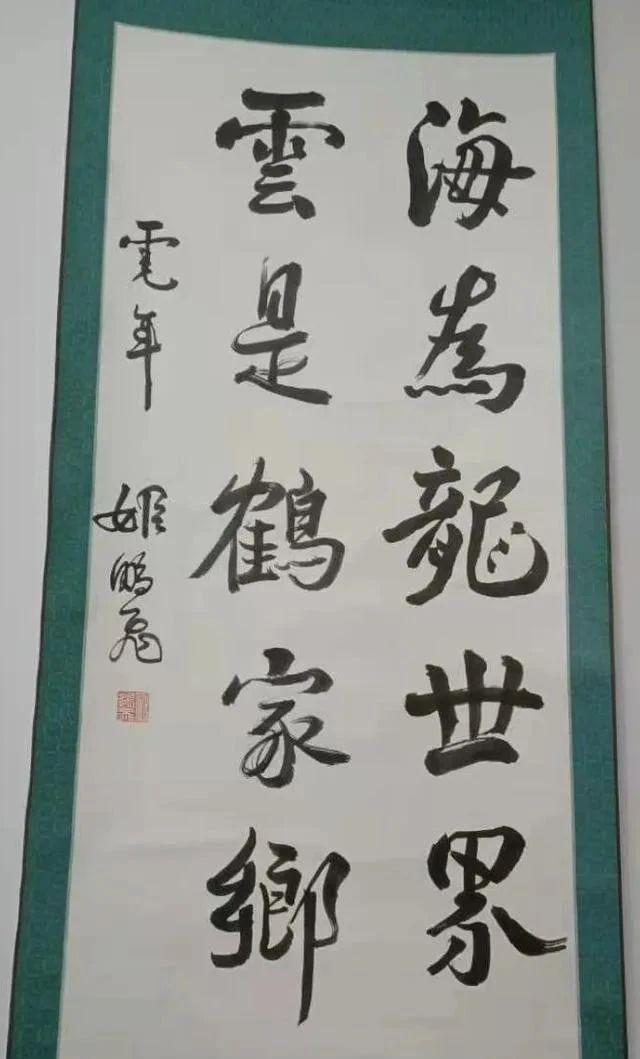 海為龍世界
雲是鶴家鄉
電年 姬鵬飛